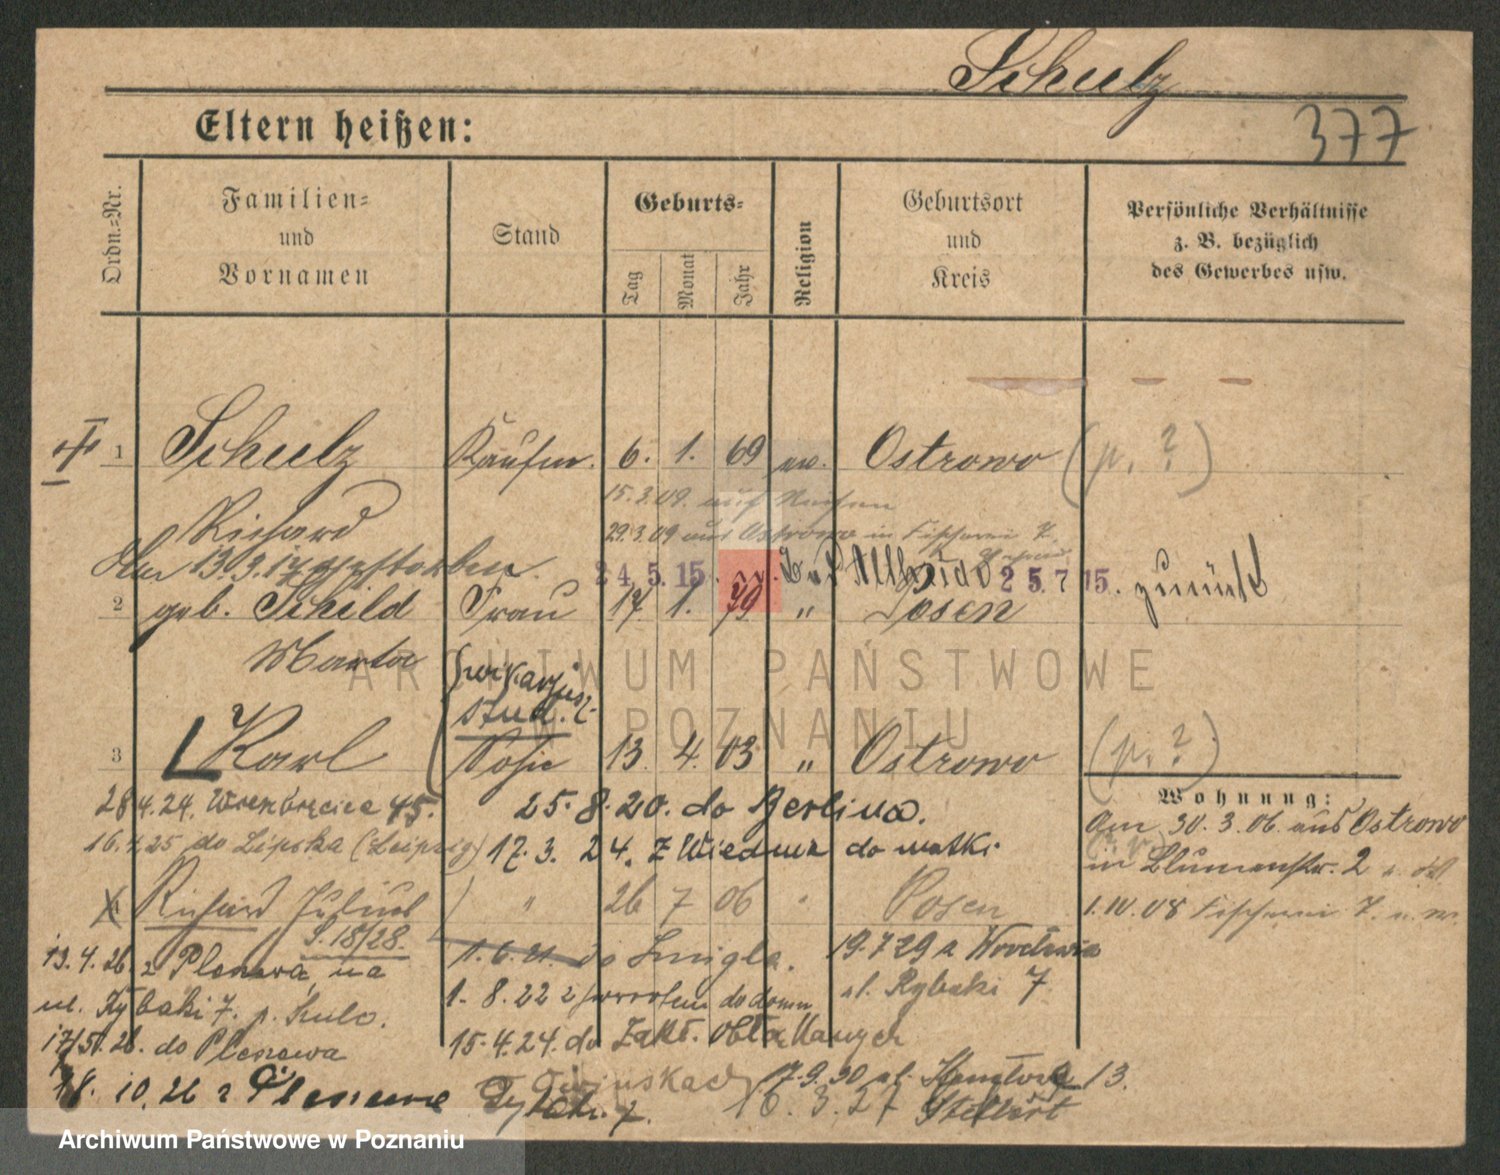 Schulz
377
Eltern heißen:
Ordn.-Nr.
Familien- und Vornamen
Stand
Geburts-
Tag
Monat
Jahr
Religion
Geburtsort und Kreis
Persönliche Verhältnisse z. B. bezüglich des Gewerbes usw.
1 Schulz Kaufm. 6. 1. 69 ev. Ostrowo (p. ?)
15.3.09. auf Reisen
Richard
29.3.09 aus Ostrowo in Fischerei 7.
13.3.17 gestorben.
24.5.15. 25.7.15. zurück
2 geb. Schild Frau 17. 1. 79 " Posen
Marta
stud.
3 Karl Sohn 13. 4. 03 " Ostrowo (p. ?)
28 4.24. 45. 25.8.20. do Berlina.
Wohnung:
Am 30.3.06. aus Ostrowo
16.4.25 do Lipska (Leipzig) 17.3.24. z Wiednia do matki
in Blumenstr. 2
Richard Julius " 26 7 06 " Posen
1.10.08 Fischerei 7.
S. 18/28.
13.4.26. z Plenewa, na
1.6.21. do Śmigla. 19.7 29 z Wrocławia
ul. Rybaki 7. p.
1.8.22 z powrotem do domu
ul. Rybaki 7
17/5 26. do Plenewa
15.4.24. do Zakł.
18.10.26 z Plenewa
7.9.30 ul. 13.
16.3.27
ARCHIWUM PAŃSTWOWE
W POZNANIU
Archiwum Państwowe w Poznaniu